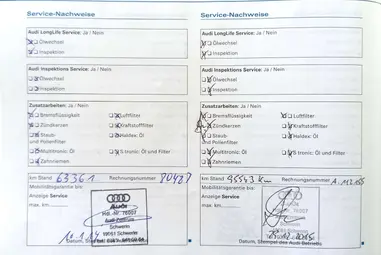 Service-Nachweise
Audi LongLife Service: Ja / Nein
Ölwechsel
Inspektion
Audi Inspektions Service: Ja / Nein
Ölwechsel
Inspektion
Zusatzarbeiten: Ja / Nein
Bremsflüssigkeit Luftfilter
Zündkerzen Kraftstofffilter
Staub- und Pollenfilter Haldex: Öl
Multitronic: Öl S tronic: Öl und Filter
Zahnriemen
km Stand 63361 Rechnungsnummer
Mobilitätsgarantie bis:
Anzeige Service
max. km
Audi
Schwedt
Datum, Stempel
Service-Nachweise
Audi LongLife Service: Ja / Nein
Ölwechsel
Inspektion
Audi Inspektions Service: Ja / Nein
Ölwechsel
Inspektion
Zusatzarbeiten: Ja / Nein
Bremsflüssigkeit Luftfilter
Zündkerzen Kraftstofffilter
Staub- und Pollenfilter Haldex: Öl
Multitronic: Öl S tronic: Öl und Filter
Zahnriemen
km Stand 95543 km Rechnungsnummer
Mobilitätsgarantie bis:
Anzeige Service
max. km
Datum, Stempel des Audi Betriebs